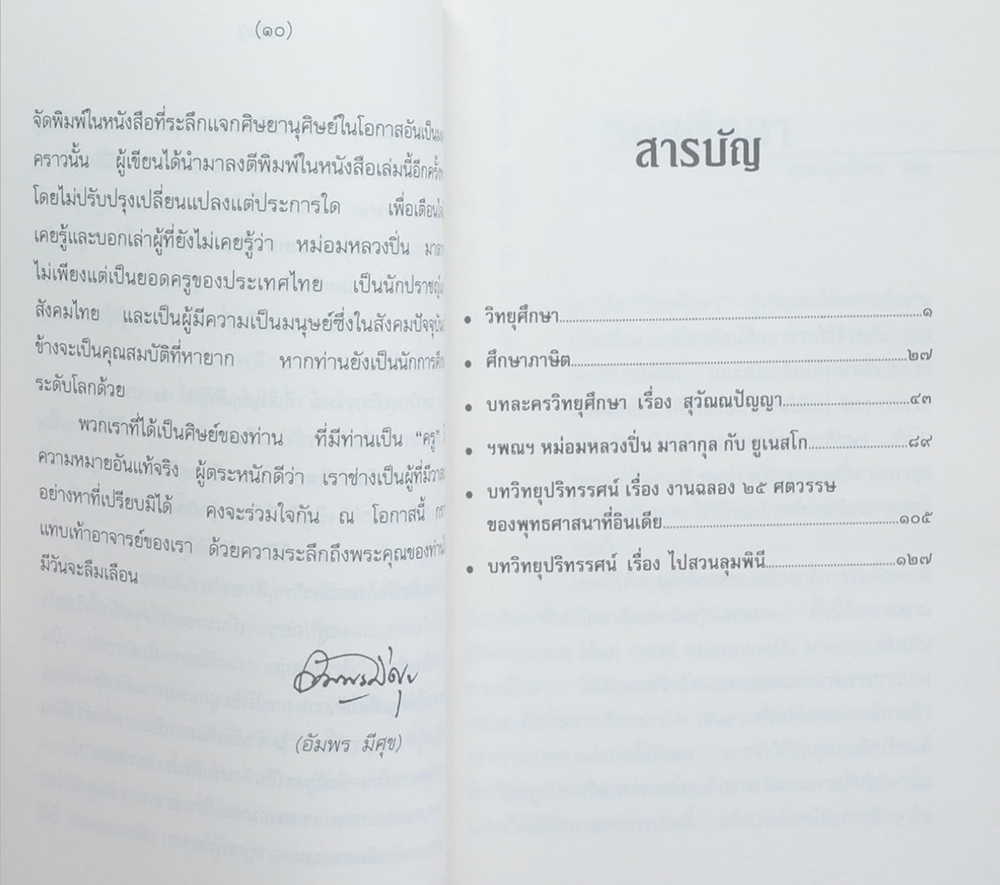 (๑๐)
จัดพิมพ์ในหนังสือที่ระลึกแจกศิษยานุศิษย์ในโอกาสอันเป็น
คราวนั้น ผู้เขียนได้นำมาลงตีพิมพ์ในหนังสือเล่มนี้อีกครั้ง
โดยไม่ปรับปรุงเปลี่ยนแปลงแต่ประการใด เพื่อเตือน
เคยรู้และบอกเล่าผู้ที่ยังไม่เคยรู้ว่า หม่อมหลวงปิ่น มาลา
ไม่เพียงแต่เป็นยอดครูของประเทศไทย เป็นนักปราชญ์
สังคมไทย และเป็นผู้มีความเป็นมนุษย์ซึ่งในสังคมปัจจุบัน
ข้างจะเป็นคุณสมบัติที่หายาก หากท่านยังเป็นนักการศึก
ระดับโลกด้วย
พวกเราที่ได้เป็นศิษย์ของท่าน ที่มีท่านเป็น “ครู”
ความหมายอันแท้จริง ผู้ตระหนักดีว่า เราช่างเป็นผู้ที่มีวาส
อย่างหาที่เปรียบมิได้ คงจะร่วมใจกัน ณ โอกาสนี้ กรา
แทบเท้าอาจารย์ของเรา ด้วยความระลึกถึงพระคุณของท่าน
มีวันจะลืมเลือน
อัมพร มีศุข
(อัมพร มีศุข)
สารบัญ
• วิทยุศึกษา....................๑
• ศึกษาภาษิต....................๒๗
• บทละครวิทยุศึกษา เรื่อง สุวัณณปัญญา....................๔๓
• ฯพณฯ หม่อมหลวงปิ่น มาลากุล กับ ยูเนสโก....................๘๙
• บทวิทยุปริทรรศน์ เรื่อง งานฉลอง ๒๕ ศตวรรษ
ของพุทธศาสนาที่อินเดีย....................๑๐๕
• บทวิทยุปริทรรศน์ เรื่อง ไปสวนลุมพินี....................๑๒๗